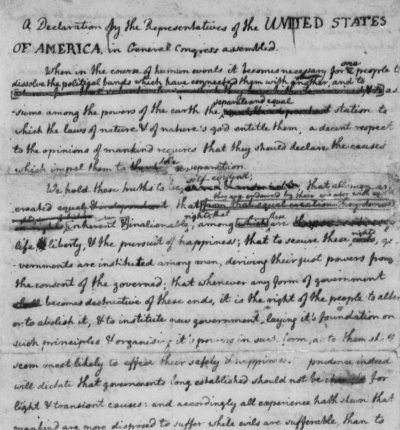 A Declaration by the Representatives of the UNITED STATES
OF AMERICA, in General Congress assembled.
When in the course of human events it becomes necessary for one people to
dissolve the political bands which have connected them with another, and to
as-
sume among the powers of the earth the separate and equal station to
which the laws of nature & of nature's god entitle them, a decent respect
to the opinions of mankind requires that they should declare the causes
which impel them to the separation.
We hold these truths to be self-evident; that all men are
created equal & that they are endowed by their creator with
rights; that these
inherent & inalienable, among are
life, & liberty, & the pursuit of happiness; that to secure these, go-
vernments are instituted among men, deriving their just powers from
the consent of the governed; that whenever any form of government
becomes destructive of these ends, it is the right of the people to alter
or to abolish it, & to institute new government, laying it's foundation on
such principles & organising it's powers in such form, as to them shall
seem most likely to effect their safety & happiness. prudence indeed
will dictate that governments long established should not be for
light & transient causes: and accordingly all experience hath shewn that
mankind are more disposed to suffer while evils are sufferable, than to